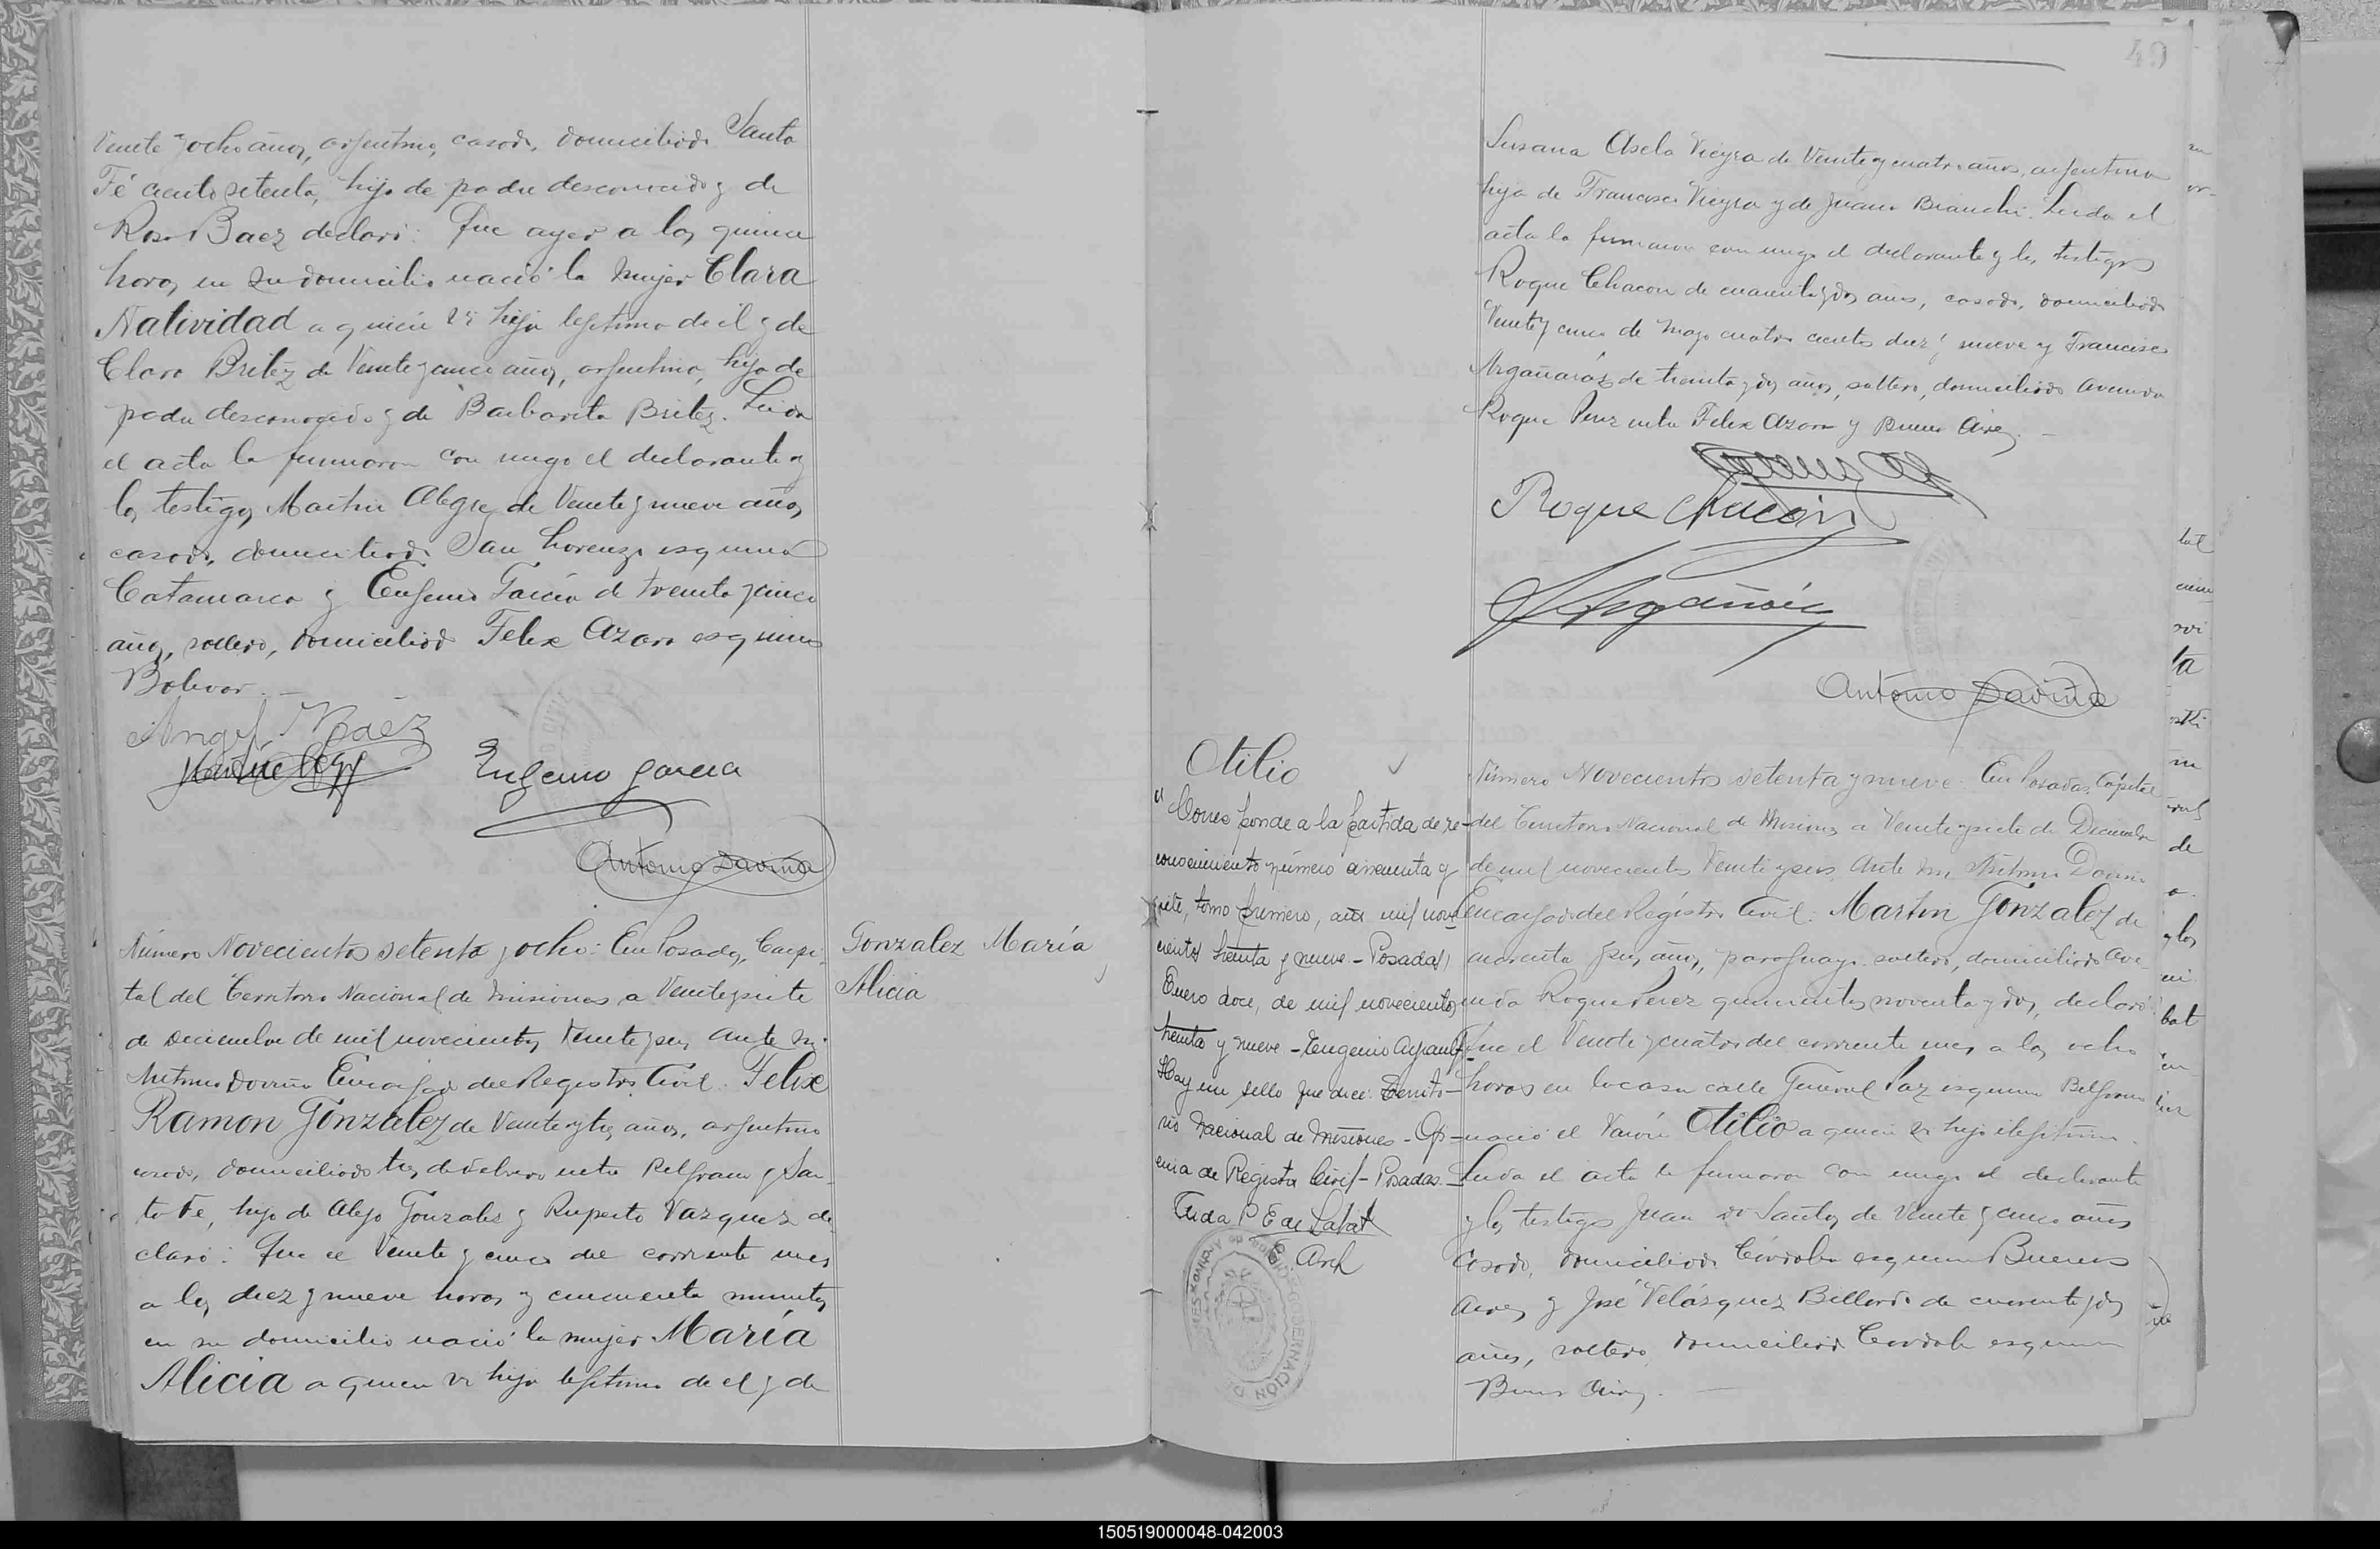 Veinte y ocho años, argentino, casado, domiciliado Santa
Fé ciento setenta, hijo de padre desconocido y de
Rosa Baez declaró: Que ayer a las quince
horas, en su domicilio nació la mujer Clara
Natividad a quien es hija legitima de el y de
Clara Britez de Veinte y cinco años, argentina, hija de
padre desconocido y de Barbarita Britez. Leida
el acta la firmaron con migo el declarante y
los testigos Martin Alegre de Veinte y nueve años
casado, domiciliado San Lorenzo esquina
Catamarca y Eugenio Garcia de treinta y cinco
años, soltero, domiciliado Felix Azara esquina
Bolivar. —
Angel Baez
Eugenio Garcia
Antonio Daviña
Número Novecientos setenta y ocho: En Posadas, Capi-
tal del Territorio Nacional de Misiones a Veinte y siete
de Diciembre de mil novecientos Veinte y seis, ante mi
Antonio Daviña Encargado del Registro Civil: Felix
Ramon Gonzalez de Veinte y tres años, argentino
casado, domiciliado tres de Febrero entre Belgrano y San-
ta Fe, hijo de Alejo Gonzalez y Ruperta Vazquez de-
claró: Que el Veinte y cinco del corriente mes
a las diez y nueve horas y cincuenta minutos
en su domicilio nació la mujer María
Alicia a quien es hija legitima de el y de
Gonzalez María
Alicia
49
Susana Asela Vieyra de Veinte y cuatro años, argentina
hija de Francisco Vieyra y de Juana Bianchi. Leida el
acta la firmaron con migo el declarante y los testigos
Roque Chacon de cuarenta y dos años, casado, domiciliado
Veinte y cinco de Mayo cuatro cientos diez y nueve y Francisco
Argañarás de treinta y dos años, soltero, domiciliado Avenida
Roque Perez entre Felix Azara y Buenos Aires. —
Roque Chacón
Antonio Daviña
Otilio
"Corresponde a la partida de re-
conocimiento número cincuenta y
siete, tomo primero, año mil nove
cientos treinta y nueve - Posadas,
Enero doce, de mil novecientos
treinta y nueve - Eugenio
Hay un sello que dice: Territo-
rio Nacional de Misiones - Ofi-
cina de Registro Civil - Posadas. -
Arch
GOBERNACION DE MISIONES
Número Novecientos setenta y nueve: En Posadas, Capital
del Territorio Nacional de Misiones a Veinte y siete de Diciembre
de mil novecientos Veinte y seis, ante mi Antonio Daviña
Encargado del Registro Civil: Martin Gonzalez de
cuarenta y seis años, paraguayo soltero, domiciliado Ave-
nida Roque Perez quinientos noventa y dos, declaró:
Que el Veinte y cuatro del corriente mes a las ocho
horas en la casa calle General Paz esquina Belgrano
nació el Varón Otilio a quien es hijo ilegitimo.
Leida el acta la firmaron con migo el declarante
y los testigos Juan do Santos de Veinte y cinco años
casado, domiciliado Córdoba esquina Buenos
Aires y José Velázquez Billordo de cuarenta y dos
años, soltero, domiciliado Cordoba esquina
Buenos Aires. —
150519000048-042003